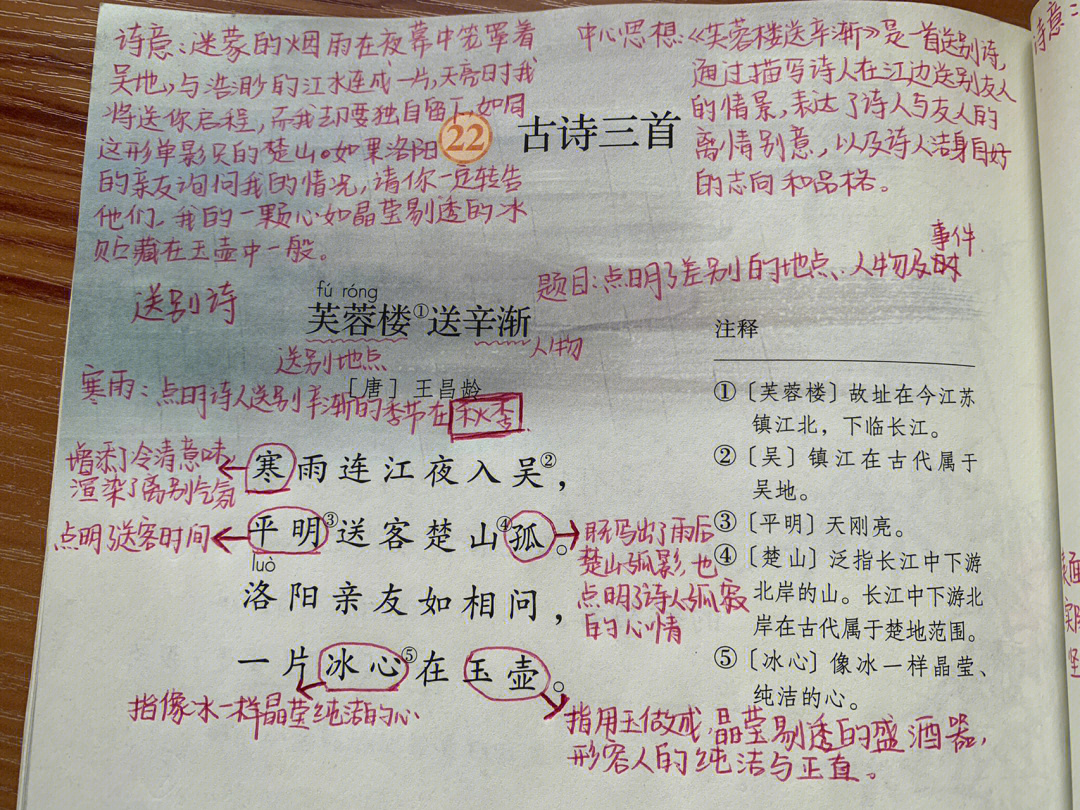 诗意:迷蒙的烟雨在夜幕中笼罩着
吴地,与浩渺的江水连成一片,天亮时我
将送你启程,而我却要独自留下,如同
这形单影只的楚山。如果洛阳
的亲友询问我的情况,请你一定转告
他们,我的一颗心如晶莹剔透的冰
贮藏在玉壶中一般。
中心思想:《芙蓉楼送辛渐》是一首送别诗,
通过描写诗人在江边送别友人
的情景,表达了诗人与友人的
离情别意,以及诗人洁身自好
的志向和品格。
22 古诗三首
事件
题目:点明了差别的地点、人物及时
送别诗
fú róng
芙蓉楼①送辛渐
人物
送别地点
[唐] 王昌龄
寒雨:点明诗人送别辛渐的季节在秋季
增添了冷清意味
渲染了离别气氛
寒雨连江夜入吴②,
点明了送客时间
平明③送客楚山④孤。
既写出了雨后
楚山孤影,也
点明了诗人孤寂
的心情
luò
洛阳亲友如相问,
一片冰心⑤在玉壶。
指像冰一样晶莹纯洁的心
指用玉做成,晶莹剔透的盛酒器,
形容人的纯洁与正直。
注释
①〔芙蓉楼〕故址在今江苏
镇江北,下临长江。
②〔吴〕镇江在古代属于
吴地。
③〔平明〕天刚亮。
④〔楚山〕泛指长江中下游
北岸的山。长江中下游北
岸在古代属于楚地范围。
⑤〔冰心〕像冰一样晶莹、
纯洁的心。
诗意: